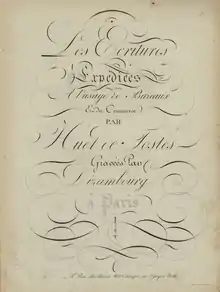 Les Ecritures
Expédiées
à l'usage de Bureaux
Et du Commerce
PAR
Huet ce Postes
Gravées Par
Dizambourg
à Paris